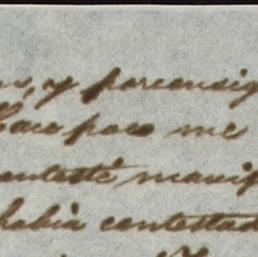 y por consig
Hace poco me
contesté manif
habia contestad